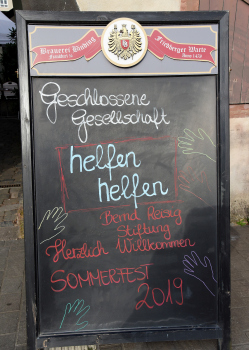 Brauerei Binding
Friedberger Warte
Geschlossene
Gesellschaft
helfen
helfen
Bernd Reisig
Stiftung
Herzlich Willkommen
SOMMERFEST
2019